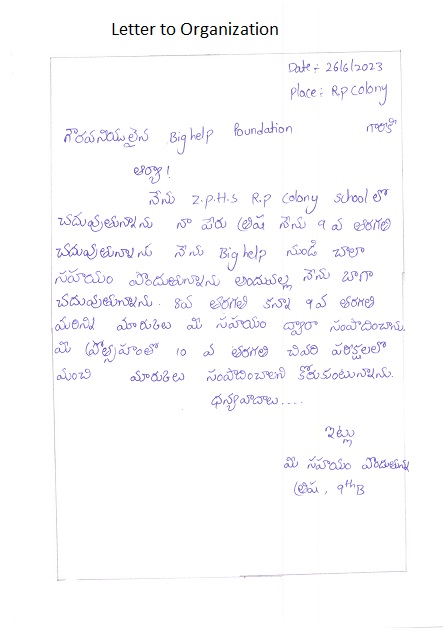 Letter to Organization
Date:- 26/6/2023
Place:- R.p colony
గౌరవనియులైన Big help Foundation గారికి
ఆర్యా!
నేను Z.P.H.S R.p colony school లో
చదువుతున్నాను నా పేరు త్రిష నేను 9 వ తరగతి
చదువుతున్నాను నేను Big help నుండి చాలా
సహయం పొందుతున్నాను అందువల్ల నేను బాగా
చదువుతున్నాను. 8వ తరగతి కన్నా 9వ తరగతి
మరిన్ని మారుకులు మి సహయం ద్వారా సంపాదించాను.
మి ప్రోత్సహంతో 10 వ తరగతి చివరి పరిక్షలలో
మంచి మారుకులు సంపాదించాలని కోరుకుంటున్నాను.
ధన్యవాదాలు....
ఇట్లు
మి సహయం పొందుతున్న
త్రిష, 9th B